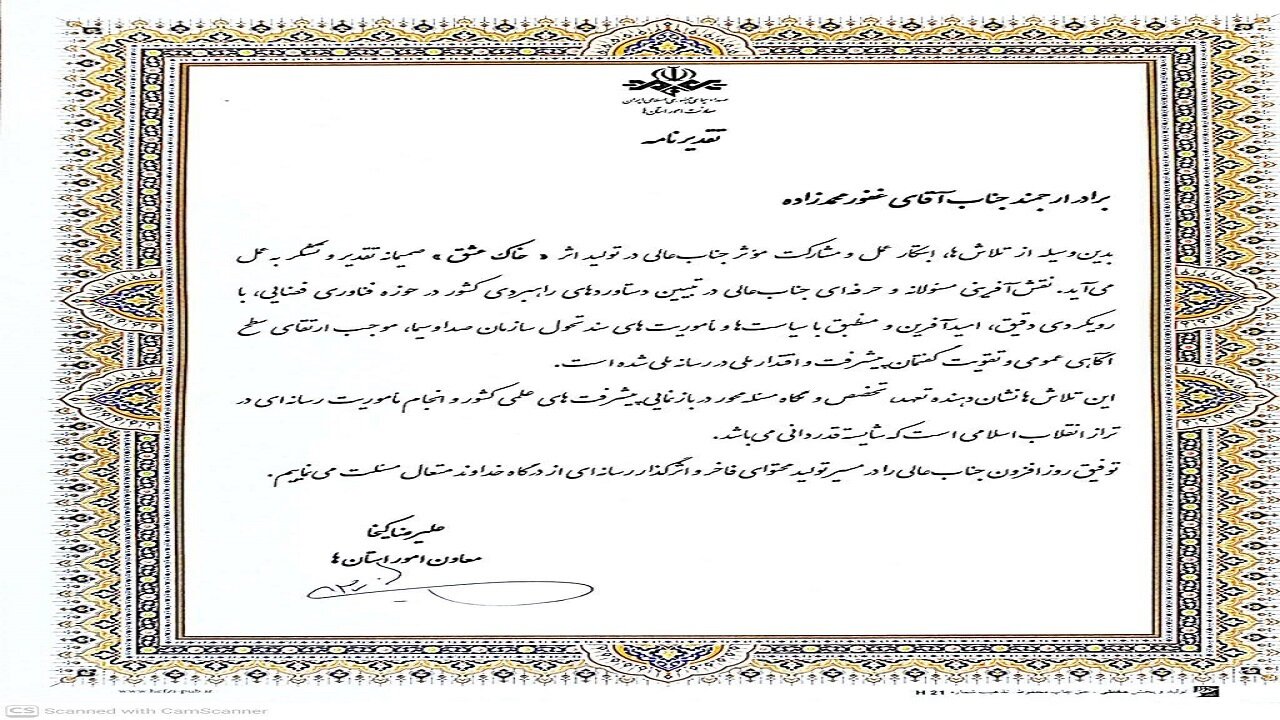 صدا و سیمای جمهوری اسلامی ایران
معاونت امور استان‌ها
تقدیرنامه
برادر ارجمند جناب آقای غفور محمدزاده
بدین وسیله از تلاش‌ها، ابتکار عمل و مشارکت مؤثر جناب‌عالی در تولید اثر « خاک عشق » صمیمانه تقدیر و تشکر به عمل
می‌آید. نقش‌آفرینی مسئولانه و حرفه‌ای جناب‌عالی در تبیین دستاوردهای راهبردی کشور در حوزه فناوری فضایی، با
رویکردی دقیق، امیدآفرین و منطبق با سیاست‌ها و مأموریت‌های سند تحول سازمان صداوسیما، موجب ارتقای سطح
آگاهی عمومی و تقویت گفتمان پیشرفت و اقتدار ملی در رسانه ملی شده است.
این تلاش‌ها نشان دهنده تعهد، تخصص و نگاه مسئله محور در بازنمایی پیشرفت‌های علمی کشور و انجام مأموریت رسانه‌ای در
تراز انقلاب اسلامی است که شایسته قدردانی می‌باشد.
توفیق روزافزون جناب‌عالی را در مسیر تولید محتوای فاخر و اثرگذار رسانه‌ای از درگاه خداوند متعال مسئلت می‌نماییم.
علیرضا کیخا
معاون امور استان‌ها
H 21
CS Scanned with CamScanner